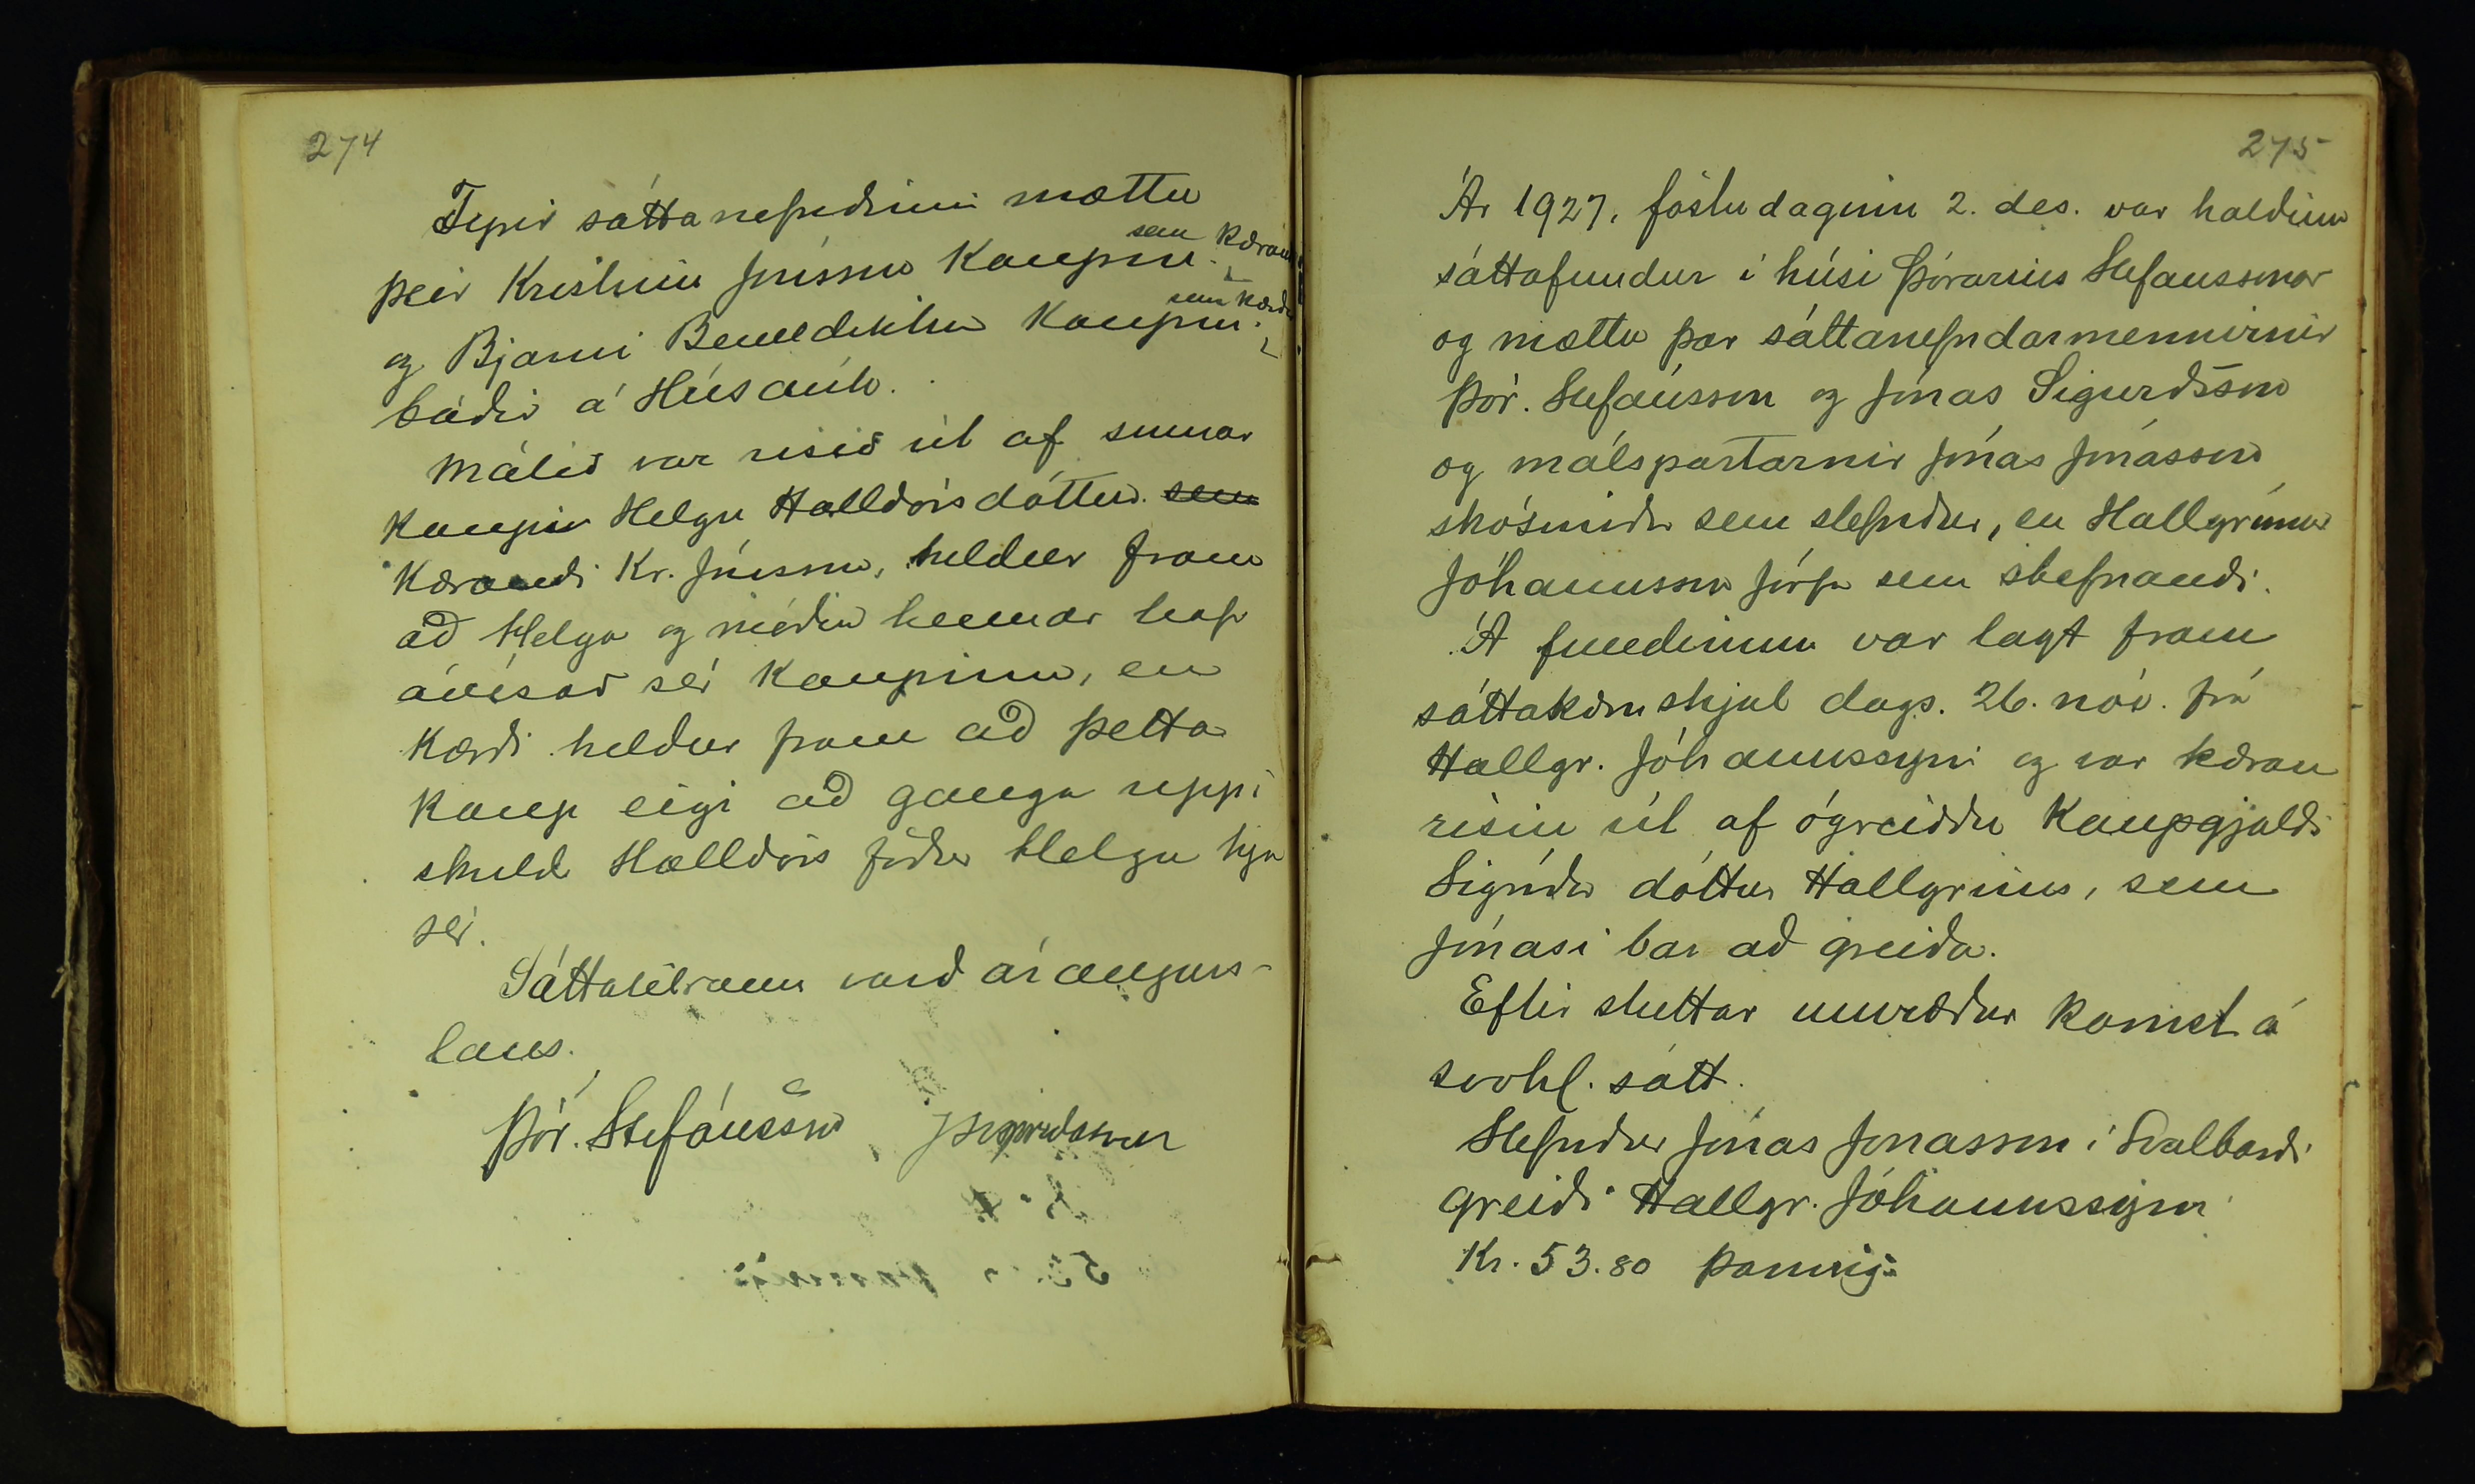 274
Fyrir sáttanefndinni mættu
þeir Kristinn Jónsson Kaupm. sem Kærandi
og Bjarni Benediktsson Kaupm. sem kærði
báðir á Húsavík.
Málið var risið út af sumar
Kaupi Helgu Halldórsdóttur. sem
Kærandi Kr. Jónsson, heldur fram
að Helga og móðir hennar hafi
ávísað sér Kaupinu, en
Kærði heldur fram að þetta
Kaup eigi að ganga uppí
skuld Halldórs föður Helgu hjá
sér.
Sáttatilraun varð árangurs-
laus.
Þór. Stefánsson JSigurdsson
275
Ár 1927, föstudaginn 2. des. var haldinn
sáttafundur í húsi Þórarins Stefánssonar
og mættu þar sáttanefndarmennirnir
Þór. Stefánsson og Jónas Sigurðsson
og málspartarnir Jónas Jónasson
skósmiður sem stefndur, en Hallgrímur
Jóhannsson sem stefnandi.
Á fundinum var lagt fram
sáttakæruskjal dags. 26. nóv. frá
Hallgr. Jóhannssyni og var kæran
risin út af ógreiddu Kaupgjaldi
Sigríðar dóttur Hallgríms, sem
Jónasi bar að greiða.
Eftir stuttar umræður komst á
svohl. sátt.
Stefndur Jónas Jónasson í Svalbarði
greiði Hallgr. Jóhannssyni
Kr. 53.80 þannig: